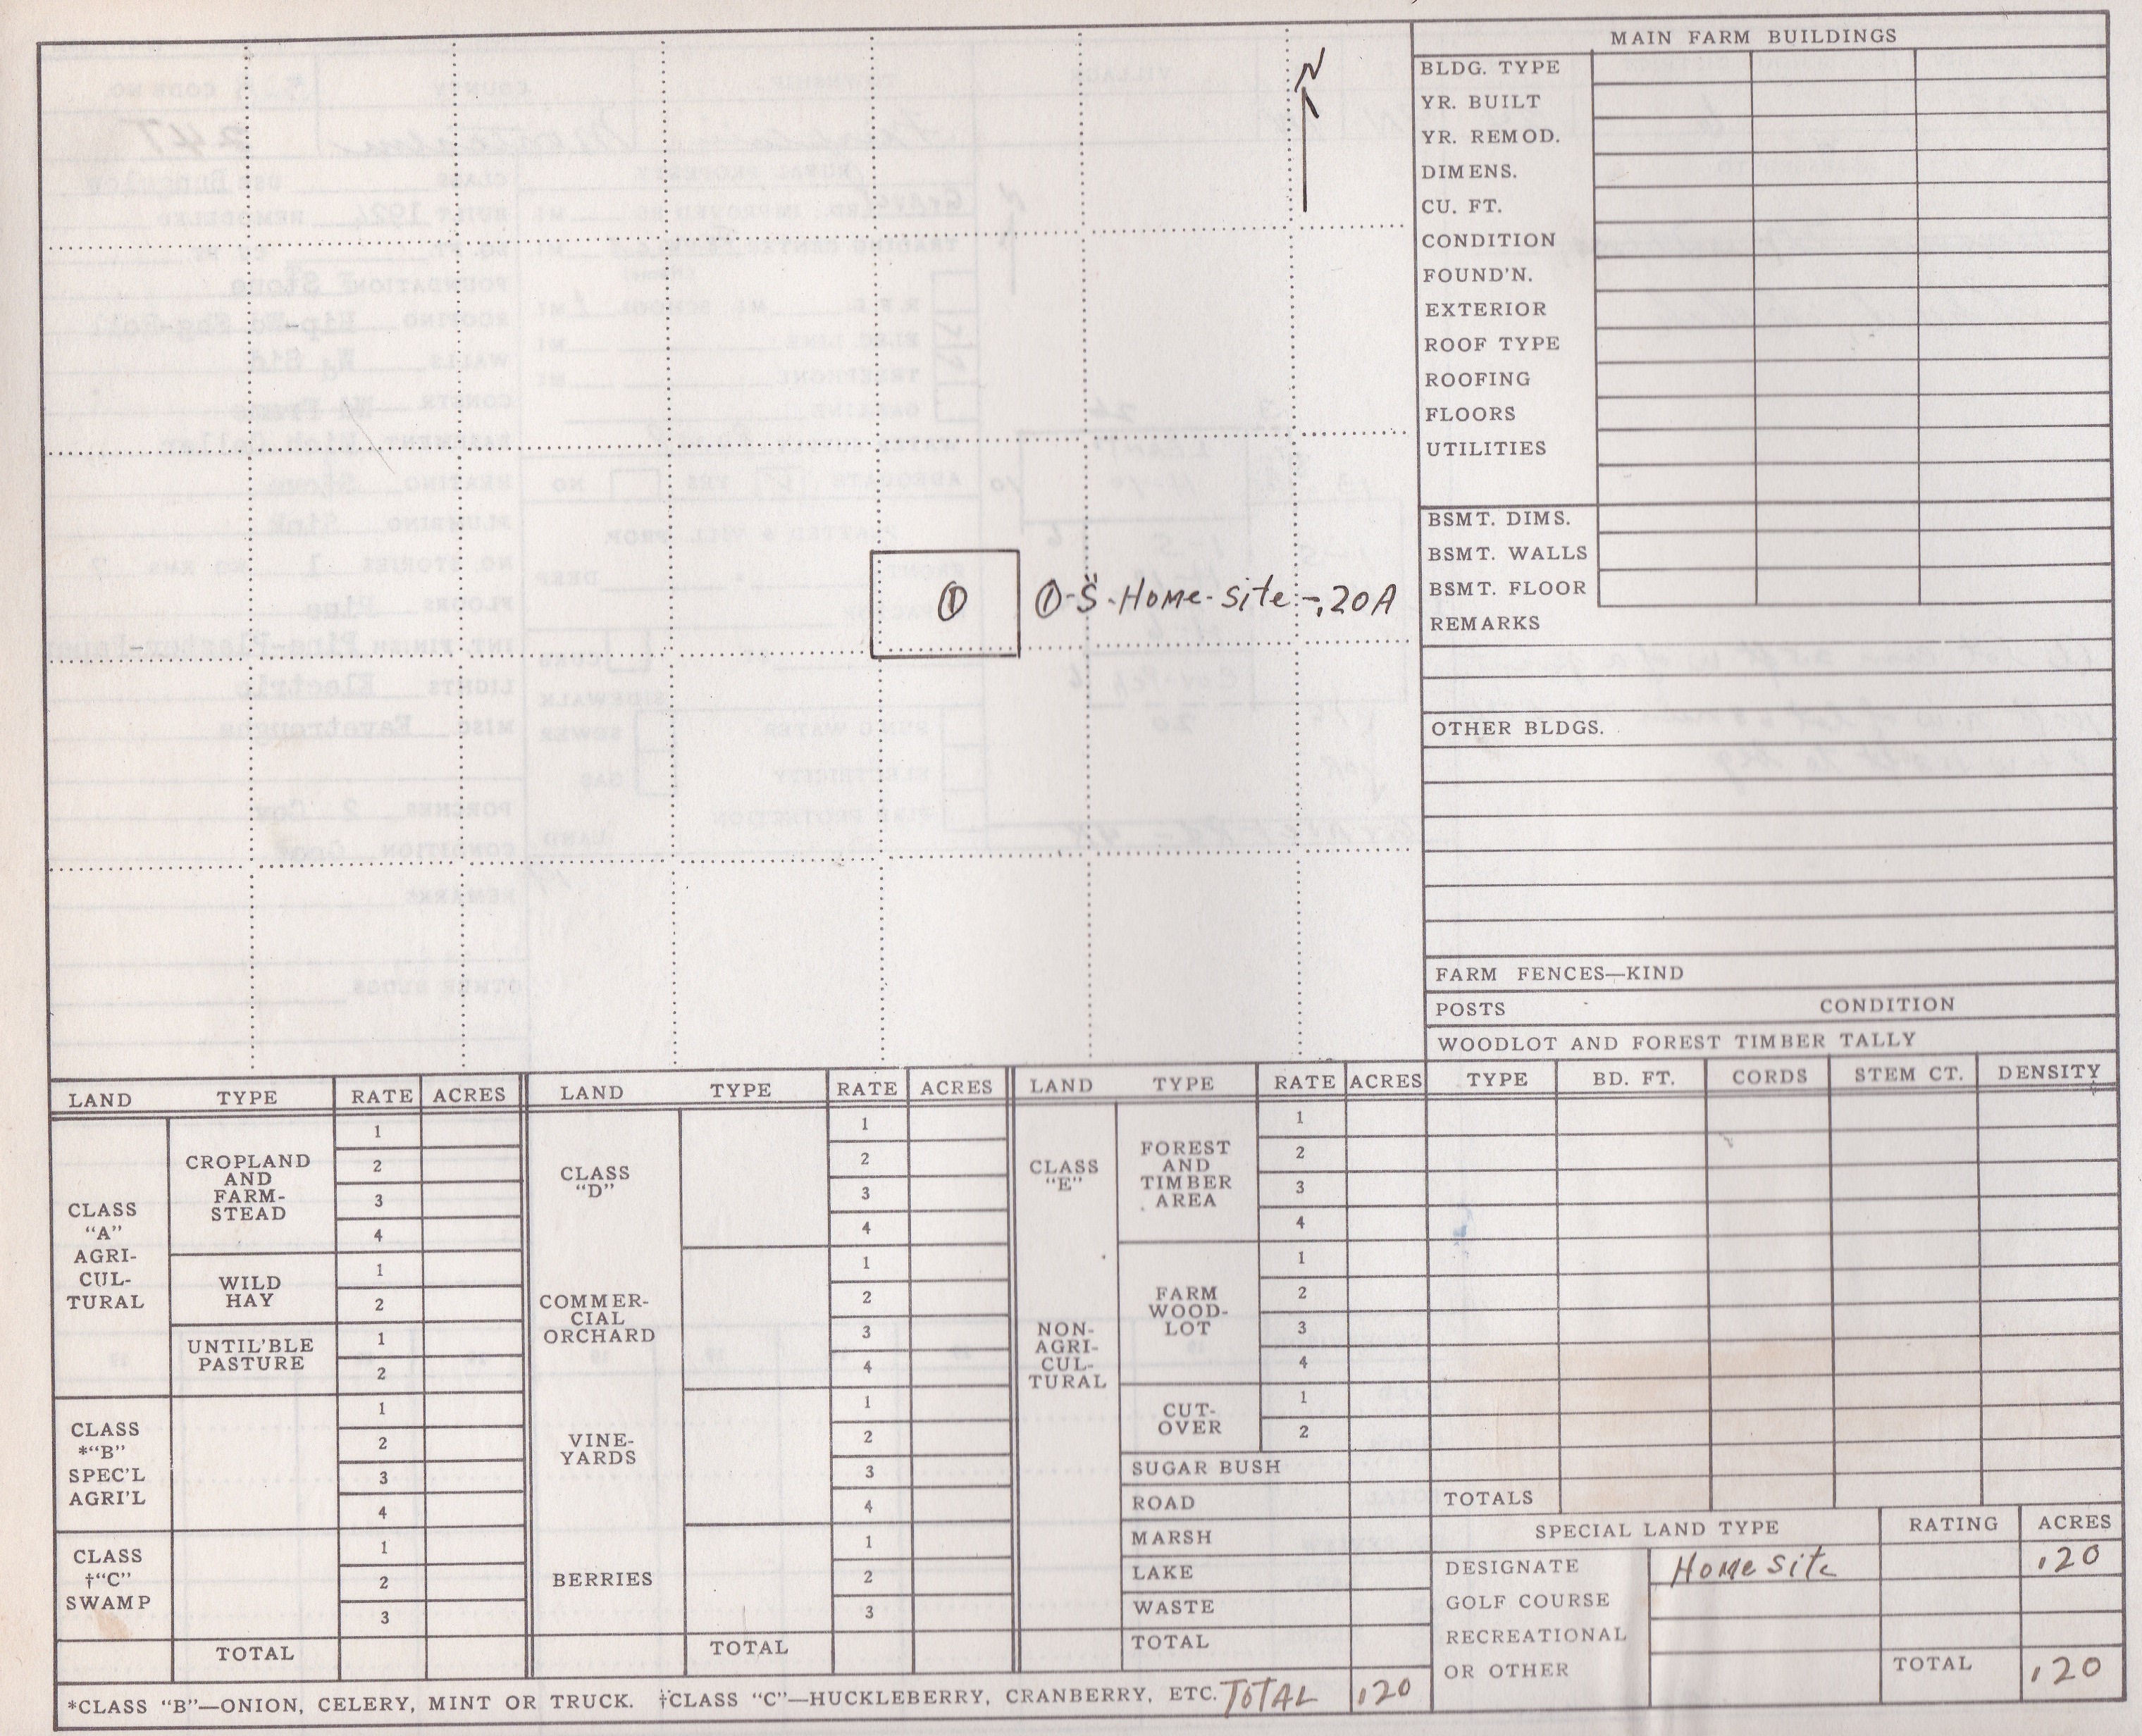 N
① ①-S-Home-Site-.20A
MAIN FARM BUILDINGS
BLDG. TYPE
YR. BUILT
YR. REMOD.
DIMENS.
CU. FT.
CONDITION
FOUND'N.
EXTERIOR
ROOF TYPE
ROOFING
FLOORS
UTILITIES
BSMT. DIMS.
BSMT. WALLS
BSMT. FLOOR
REMARKS
OTHER BLDGS.
FARM FENCES—KIND
POSTS CONDITION
WOODLOT AND FOREST TIMBER TALLY
TYPE BD. FT. CORDS STEM CT. DENSITY
TOTALS
LAND TYPE RATE ACRES
CLASS
"A"
AGRI-
CUL-
TURAL
CROPLAND
AND
FARM-
STEAD
1
2
3
4
WILD
HAY
1
2
UNTIL'BLE
PASTURE
1
2
CLASS
*"B"
SPEC'L
AGRI'L
1
2
3
4
CLASS
†"C"
SWAMP
1
2
3
TOTAL
LAND TYPE RATE ACRES
CLASS
"D"
1
2
3
4
COMMER-
CIAL
ORCHARD
1
2
3
4
VINE-
YARDS
1
2
3
4
BERRIES
1
2
3
TOTAL
LAND TYPE RATE ACRES
CLASS
"E"
NON-
AGRI-
CUL-
TURAL
FOREST
AND
TIMBER
AREA
1
2
3
4
FARM
WOOD-
LOT
1
2
3
4
CUT-
OVER
1
2
SUGAR BUSH
ROAD
MARSH
LAKE
WASTE
TOTAL
SPECIAL LAND TYPE RATING ACRES
DESIGNATE Home Site .20
GOLF COURSE
RECREATIONAL
OR OTHER TOTAL .20
*CLASS "B"—ONION, CELERY, MINT OR TRUCK. †CLASS "C"—HUCKLEBERRY, CRANBERRY, ETC. TOTAL .20